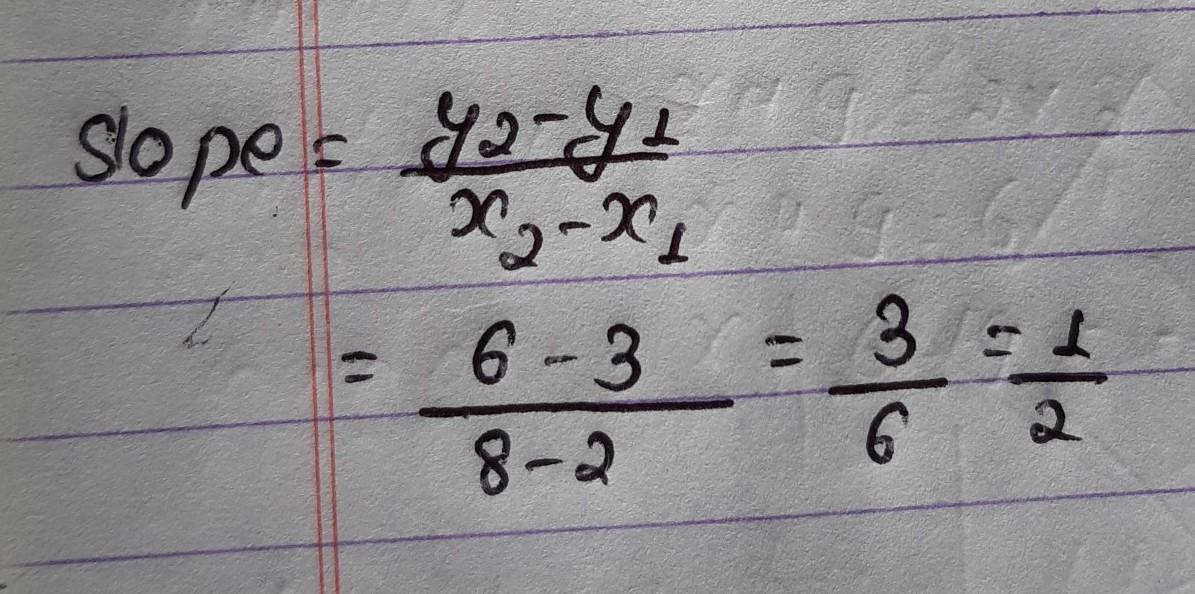 slope = y2-y1 / x2-x1
= 6-3 / 8-2 = 3/6 = 1/2